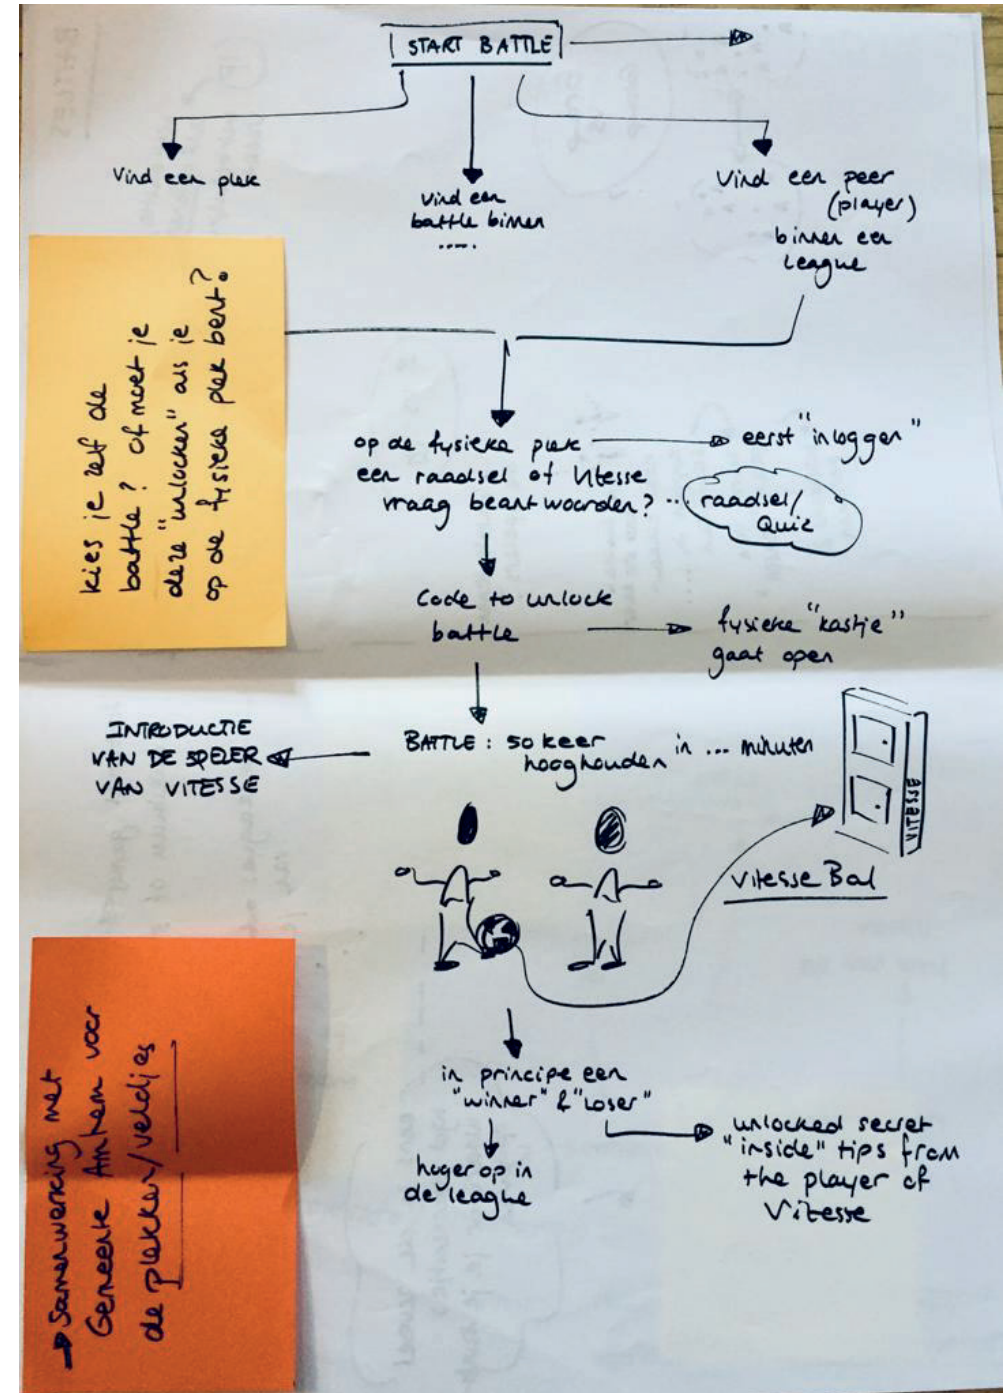 START BATTLE
Vind een plek
Vind een
battle binnen
.....
Vind een peer
(player)
binnen een
league
kies je zelf de
battle? of moet je
deze "unlocken" als je
op de fysieke plek bent?
op de fysieke plek
een raadsel of Vitesse
vraag beantwoorden?
eerst "inloggen"
raadsel/
Quiz
Code to unlock
battle
fysieke "kastje"
gaat open
INTRODUCTIE
VAN DE SPELER
VAN VITESSE
BATTLE: 50 keer
hooghouden in ... minuten
VITESSE
Vitesse Bal
in principe een
"winner" & "loser"
hoger op in
de league
unlocked secret
"inside" tips from
the player of
Vitesse
Samenwerking met
Gemeente Arnhem voor
de plekken/veldjes